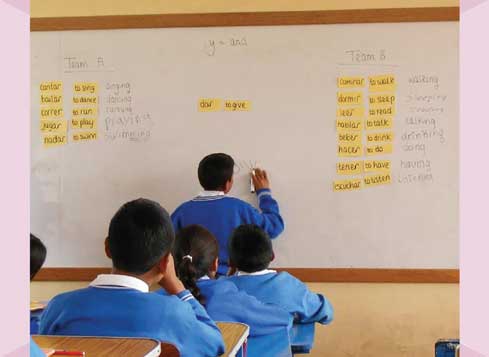 y = and
Team A
cantar to sing singing
bailar to dance dancing
correr to run running
jugar to play playing
nadar to swim swimming
dar to give
Team B
caminar to walk walking
dormir to sleep sleeping
leer to read
hablar to talk talking
beber to drink drinking
hacer to do doing
tener to have having
escuchar to listen